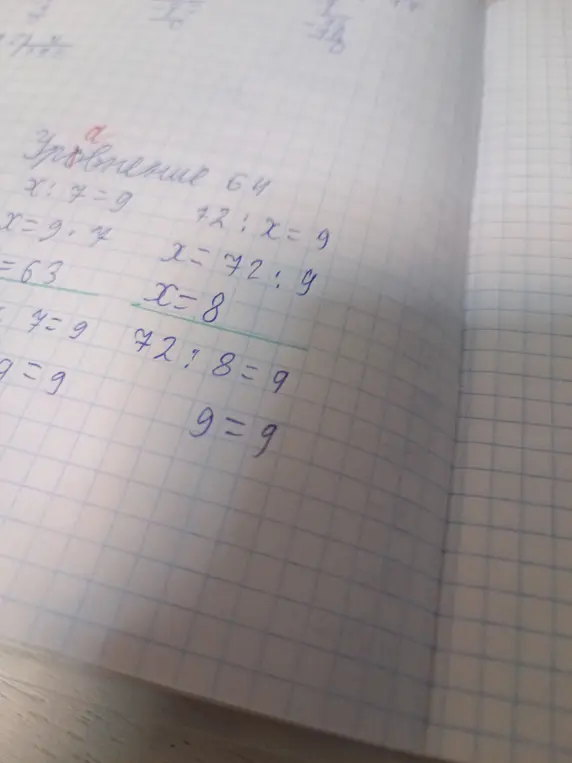 а
Уровнение 64
x : 7 = 9
x = 9 · 7
= 63
: 7 = 9
9 = 9
72 : x = 9
x = 72 : 9
x = 8
72 : 8 = 9
9 = 9